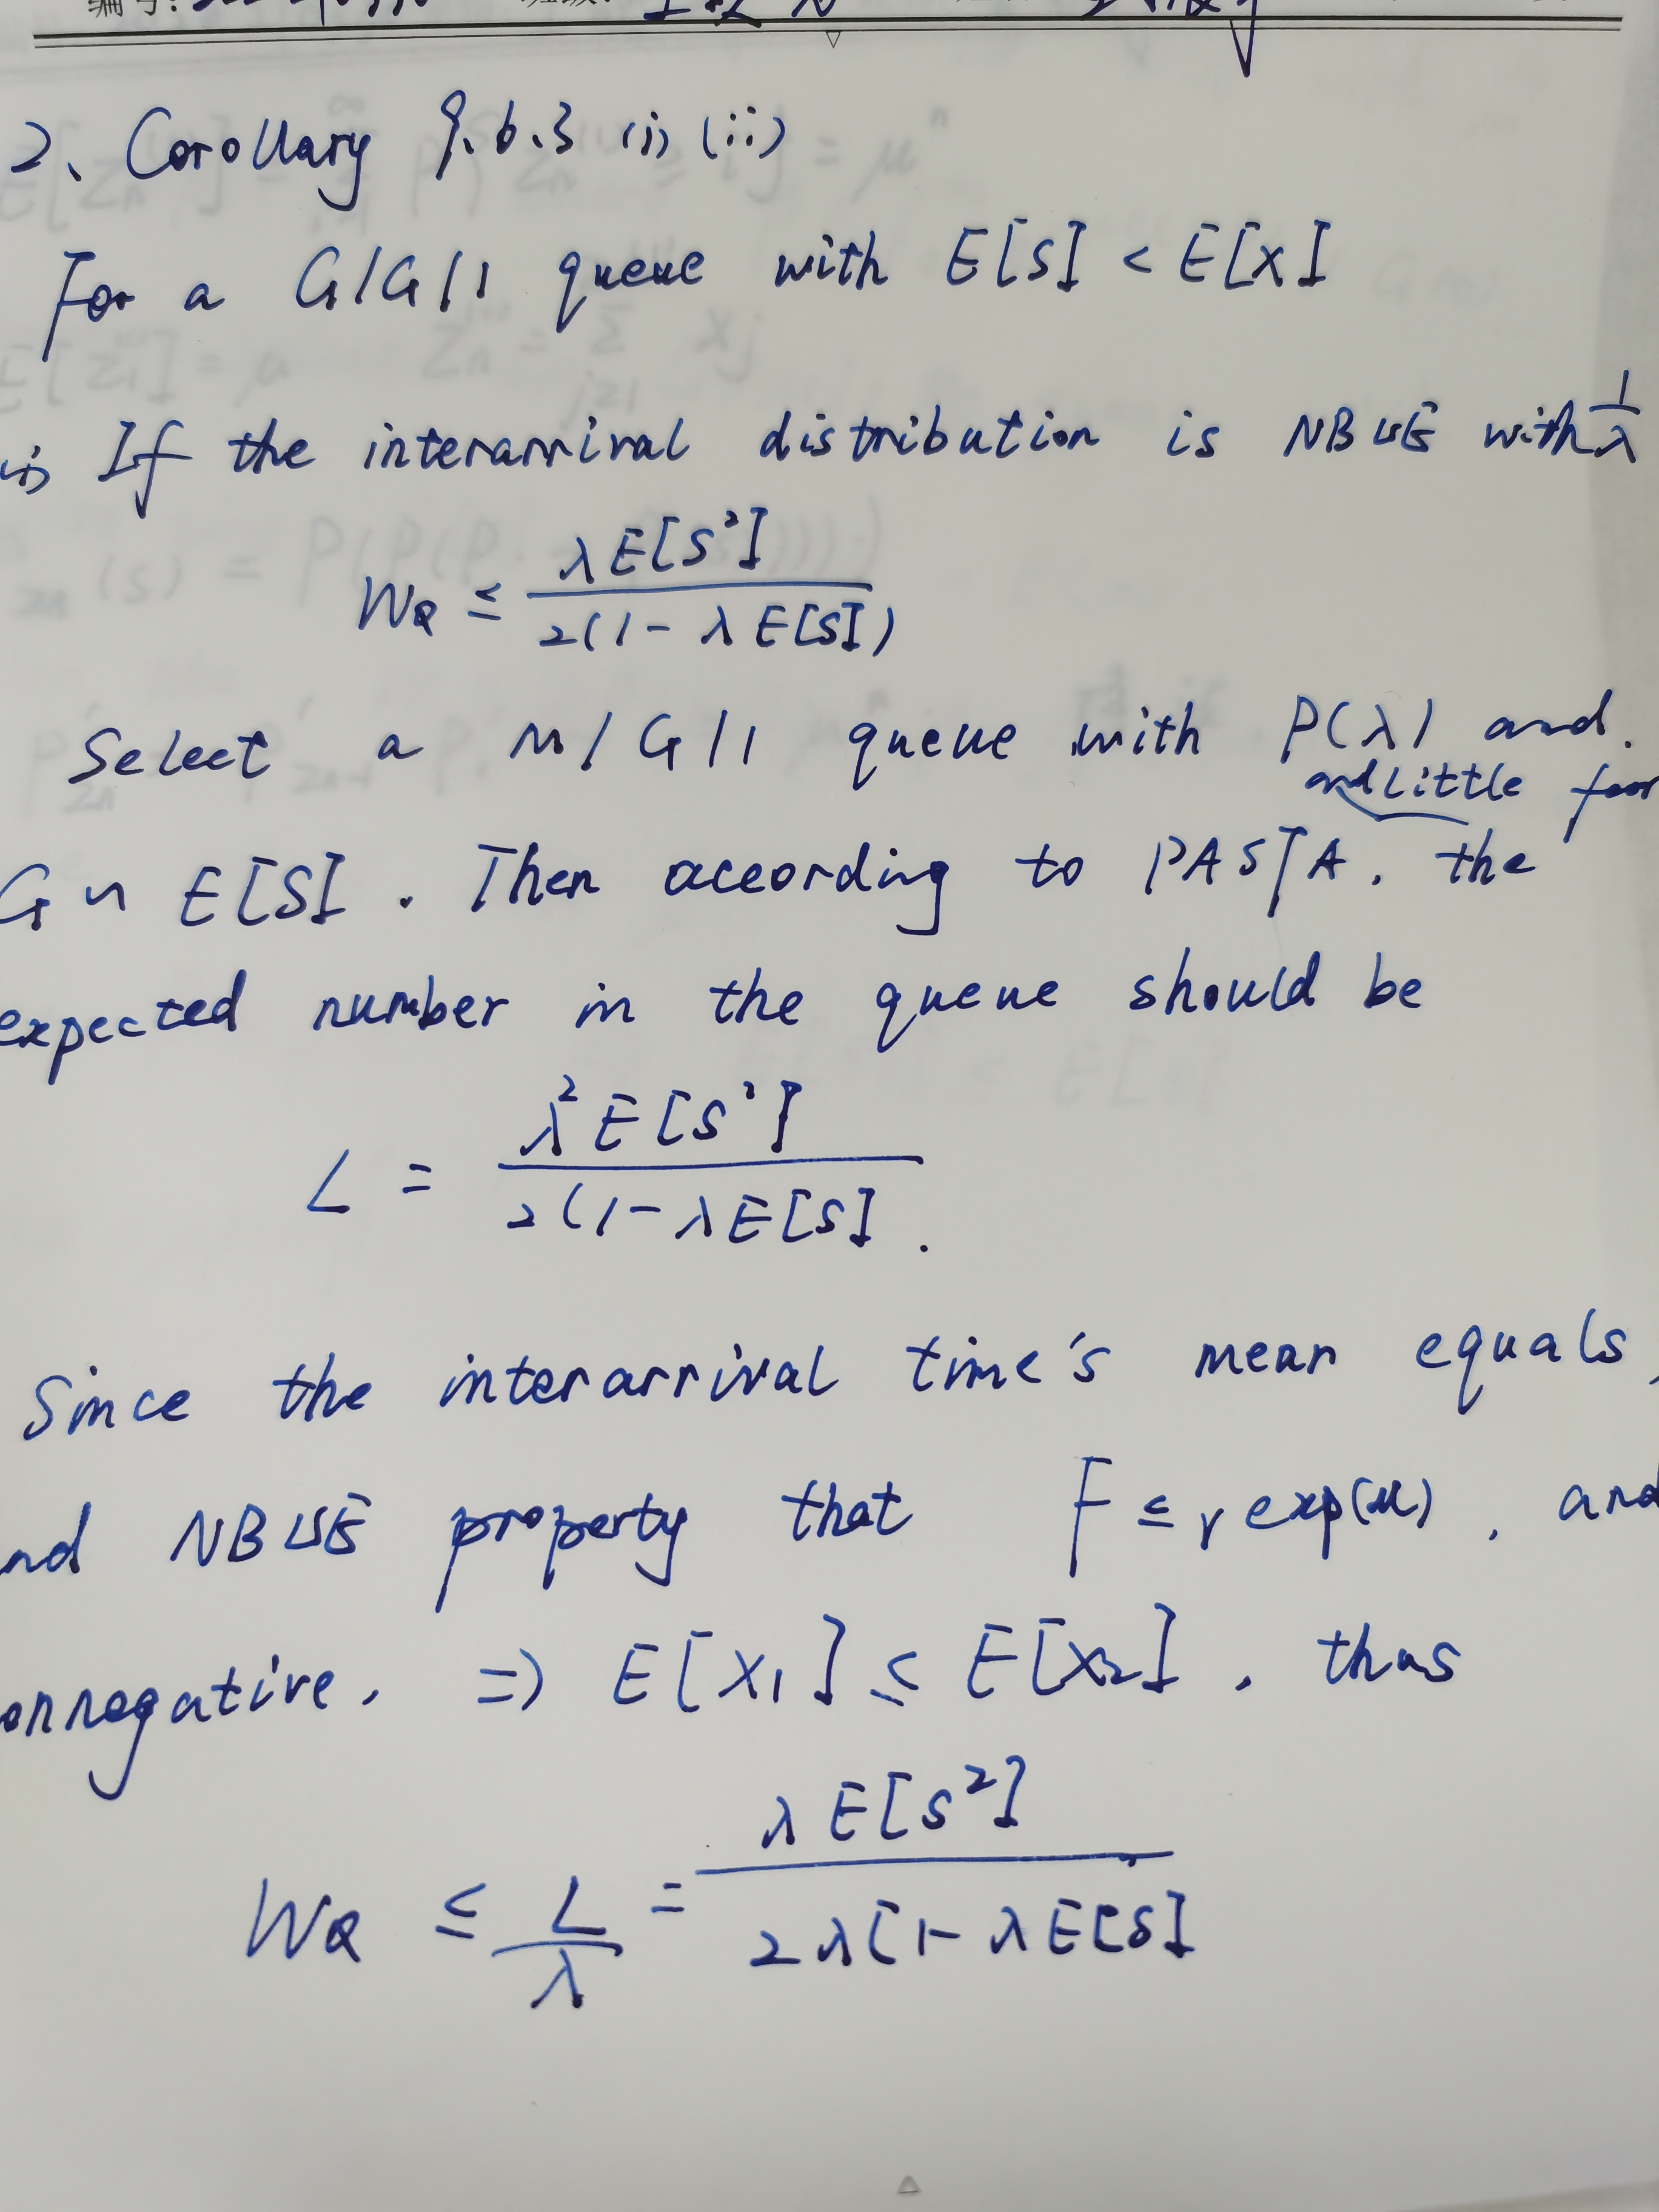 2、Corollary 9.6.3 (i) (ii)
For a G/G/1 queue with E[S] < E[X]
(i) If the interarrival distribution is NBUE with 1/λ
W_Q ≤ λE[S²] / 2(1 - λE[S])
Select a M/G/1 queue with P(λ) and.
and Little for
G ~ E[S]. Then according to PASTA, the
expected number in the queue should be
L = λ²E[S²] / 2(1-λE[S] .
Since the interarrival time's mean equals,
nd NBUE property that F ≤v exp(μ), and
onnegative, ⇒ E[X₁] ≤ E[X₂], thus
W_Q ≤ L/λ = λE[S²] / 2λ[1-λE[S]